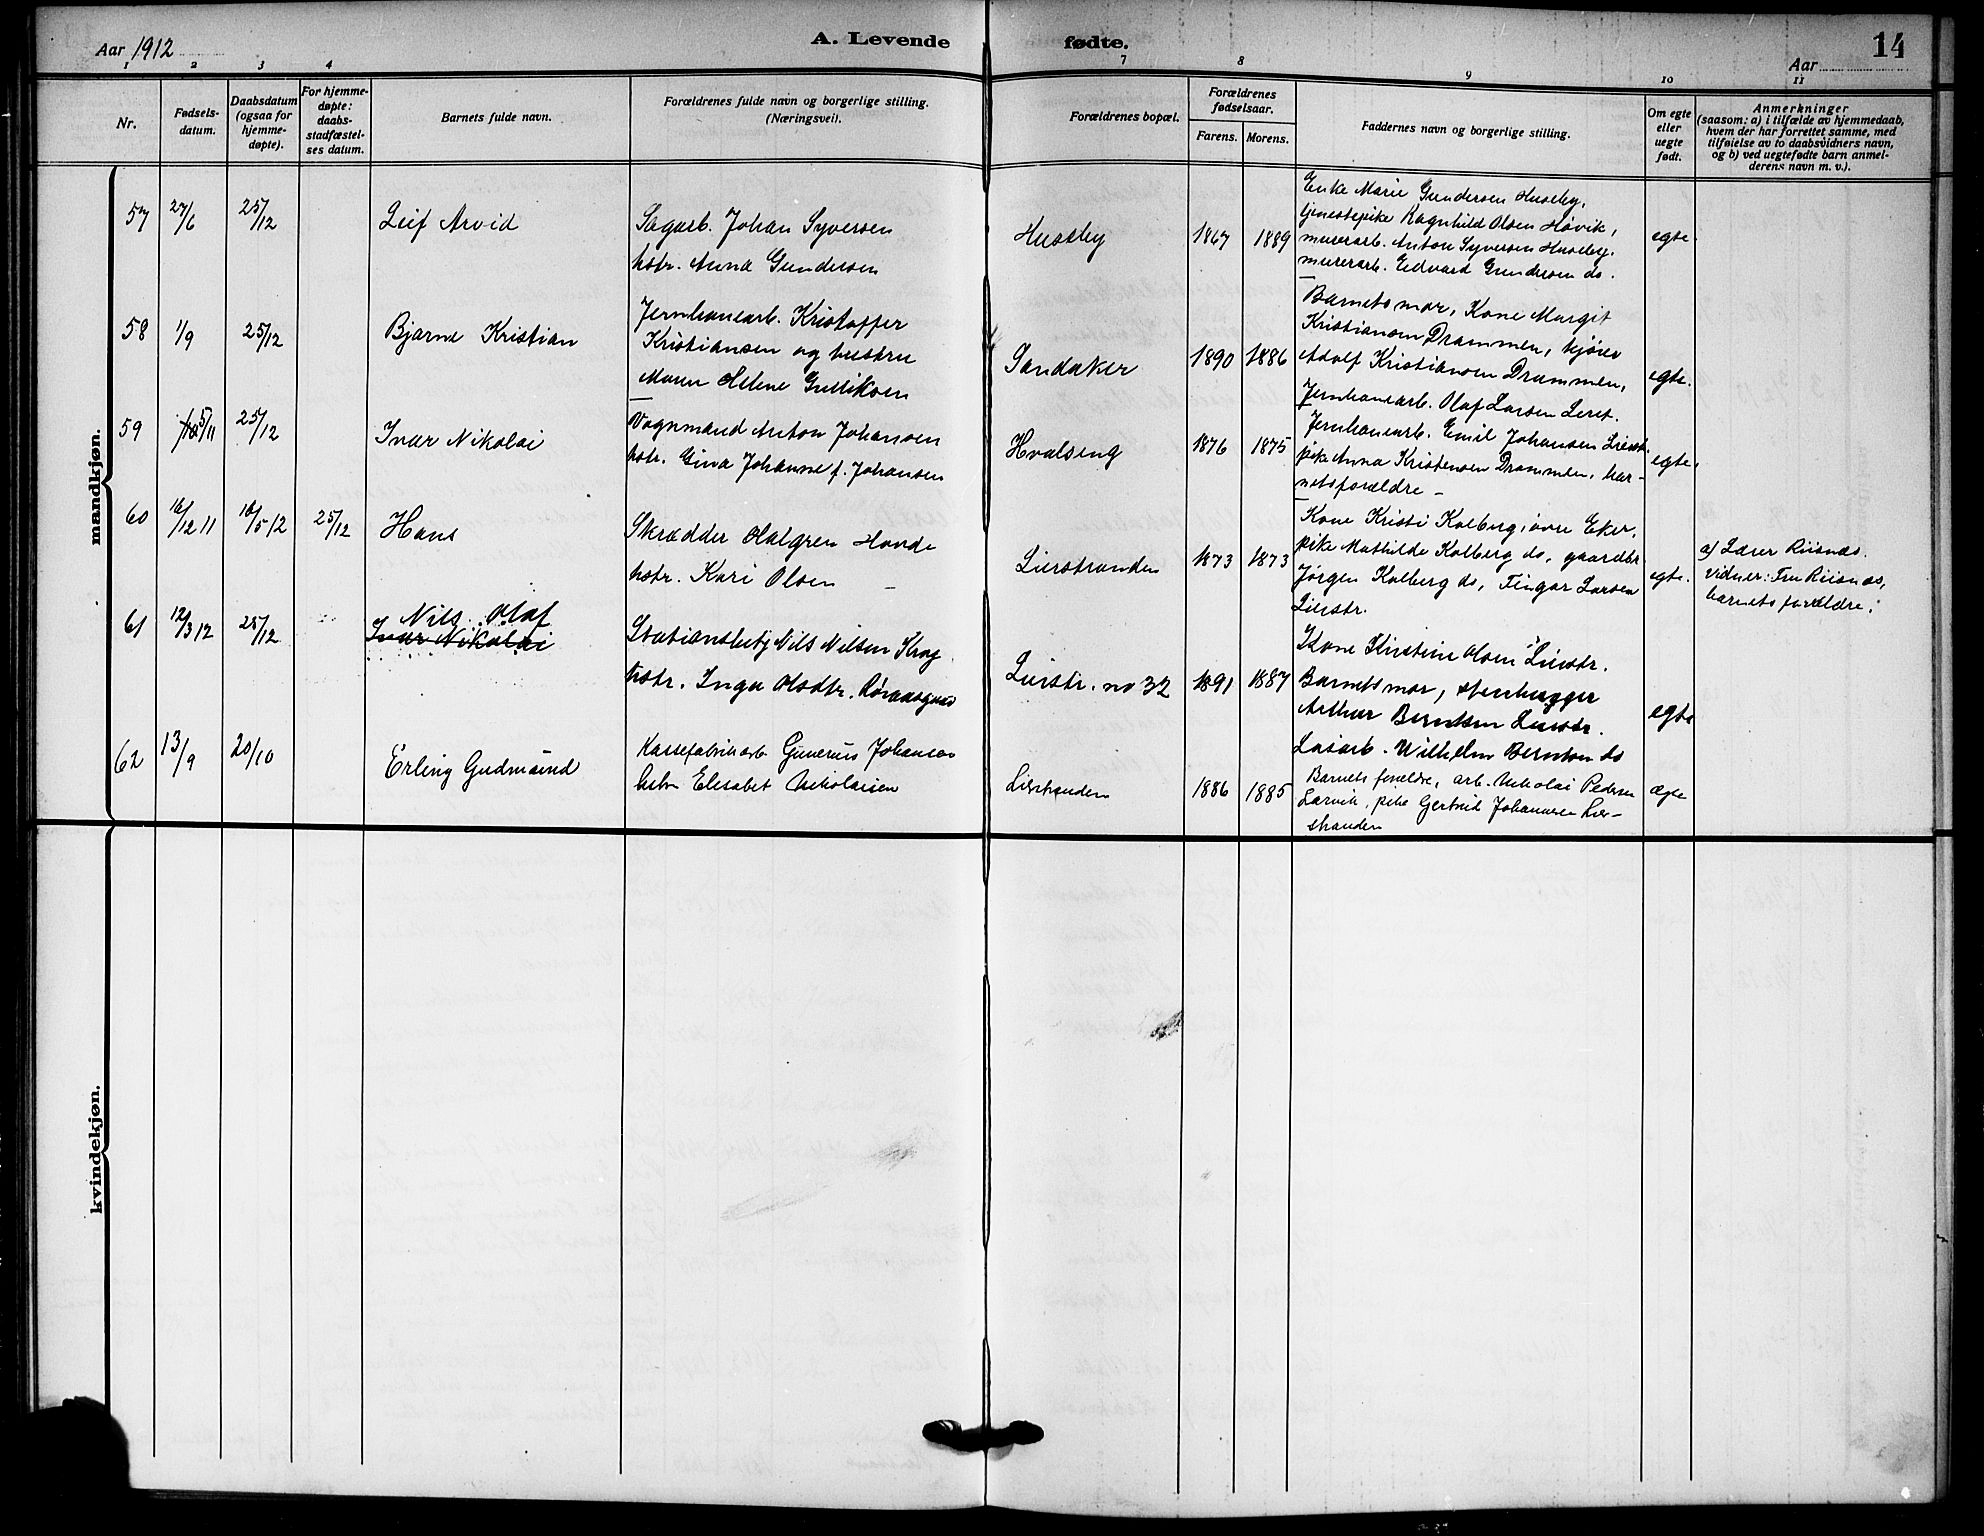 Aar 1912
A. Levende fødte.
14
Aar
1 2 3 4 7 8 9 10 11
Nr.
Fødsels-
datum.
Daabsdatum
(ogsaa for
hjemme-
døpte).
For hjemme-
døpte:
daabs-
stadfæstel-
ses datum.
Barnets fulde navn.
Forældrenes fulde navn og borgerlige stilling.
(Næringsvei).
Forældrenes bopæl.
Forældrenes
fødselsaar.
Farens. Morens.
Faddernes navn og borgerlige stilling.
Om egte
eller
uegte
født.
Anmerkninger
(saasom: a) i tilfælde av hjemmedaab,
hvem der har forrettet samme, med
tilføielse av to daabsvidners navn,
og b) ved uegtefødte barn anmel-
derens navn m. v.).
mandkjøn.
57 27/6 25/12 Leif Arvid
Sagarb. Johan Syversen
hstr. Anna Gundersen
Huseby 1867 1889
Enke Marie Gundersen Huseby,
tjenestepike Ragnhild Olsen Høvik,
murerarb. Anton Syversen Huseby,
murerarb. Edvard Gundersen do.
egte.
58 1/9 25/12 Bjarne Kristian
Jernbanearb. Kristoffer
Kristiansen og hustru
Maren Helene Gulliksen
Sandaker 1890 1886
Barnets mor, Kone Margit
Kristiansen Drammen, kjører
Adolf Kristiansen Drammen,
Jernbanearb. Olaf Larsen
egte.
59 5/11 25/12 Ivar Nikolai
Vognmand Anton Johansen
hstr. Gina Johanne f. Johansen
Hvalseng 1876 1875
Jernbanearb. Emil Johansen Lierst.
pike Anna Kristensen Drammen, bar-
netsforældre –
egte.
60 16/12 11 16/5 12 25/12 Hans
Skrædder Halgren Hovde
hstr. Kari Olsen –
Lierstranden 1873 1873
Kone Kristi Kolberg, øvre Eker,
pike Mathilde Kolberg do, gaardbr
Jørgen Kolberg do, Fingar Larsen
Lierstr.
egte.
a) Lærer Riisnæs.
Vidner: Fru Riisnæs,
barnets forældre.
61 12/3 12 25/12 Nils Olaf
Ivar Nikolai
Stationsbetj Nils Nilsen Krog
hstr. Inga Olsdtr.
Lierstr. no 32 1891 1887
Kone Kirstine Olsen Lierstr.
Barnets mor, stenhugger
Arthur Berntsen Lierstr.
Løsarb. Wilhelm Berntsen do
egte
62 13/9 20/10 Erling Gudmund
Kassefabrikarb Gunerius Johansen
hstr Elisabet Nikolaisen
Lierstranden 1886 1885
Barnets forældre, arb. Nikolai Pedersen
Larvik, pike Gertrud Johannesen Lier-
stranden
ægte
kvindekjøn.